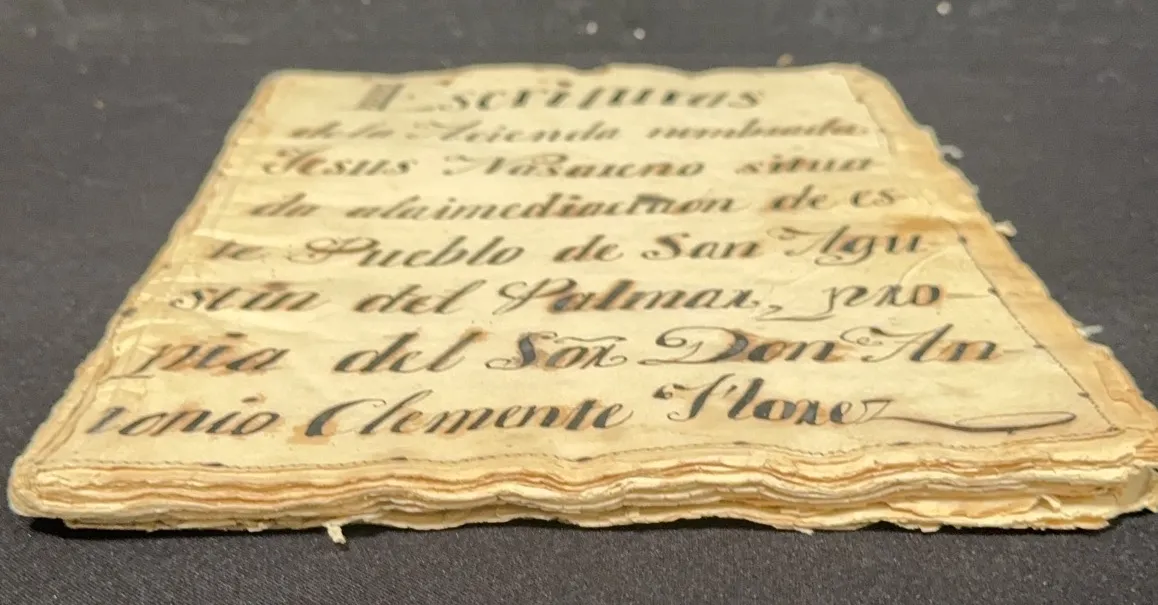 Escrituras
dela Acienda nombrada
Jesus Nasareno situa
da alaimediacion de es
te Pueblo de San Agu
stin del Palmar, pro
pia del Sor Don An
tonio Clemente Florez